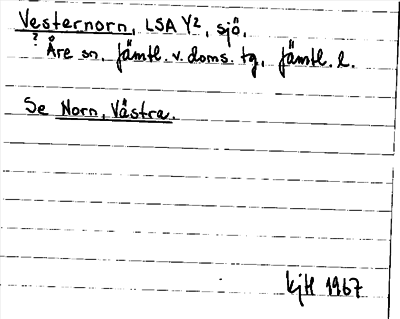 Vesternorn, LSA Y², sjö,
? Åre sn, Jämtl. v. doms. tg, Jämtl. l.
Se Norn, Västra.
KjH 1967